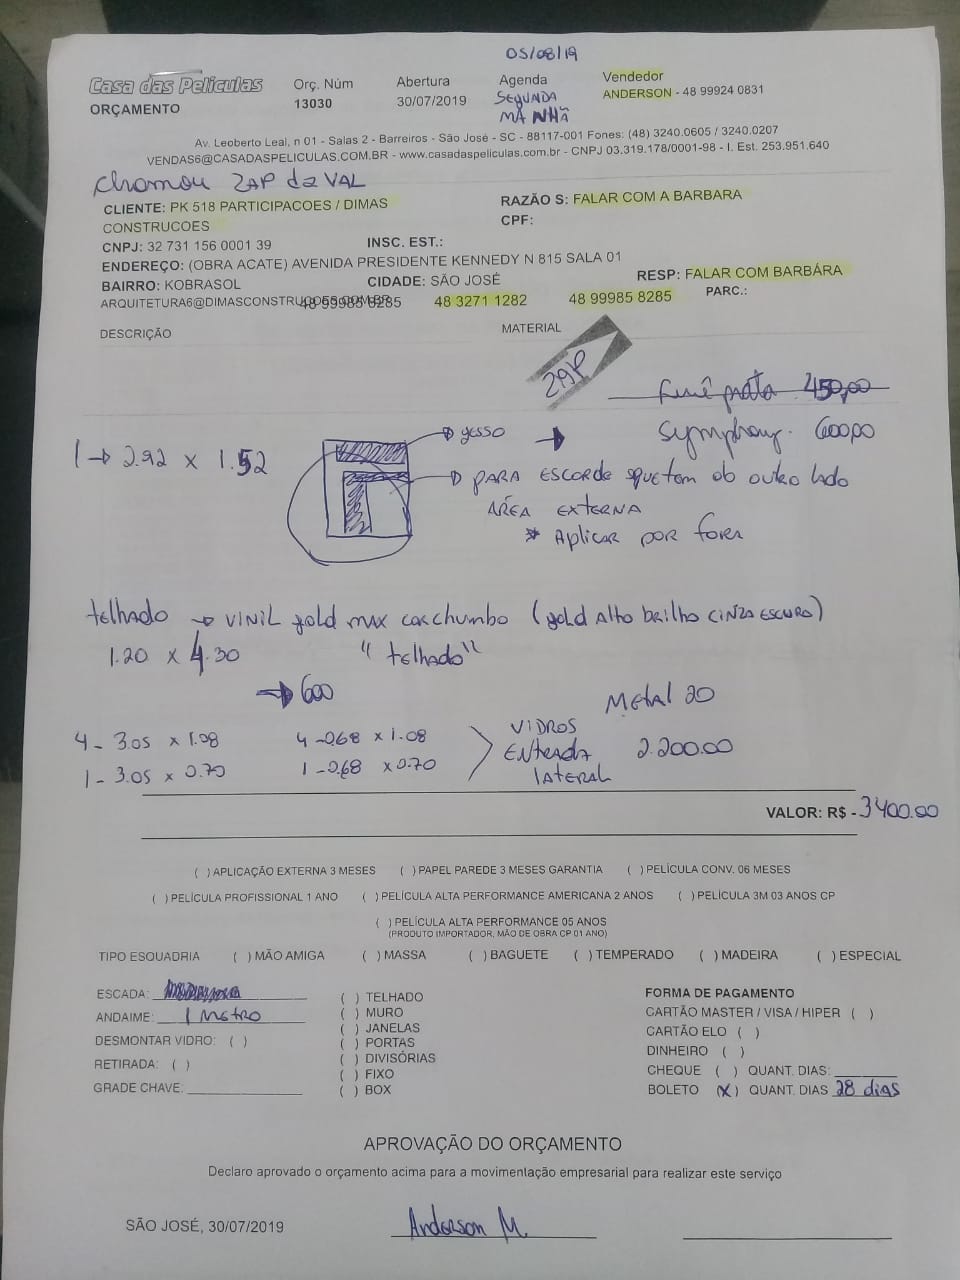 05/08/19
Casa das Películas
ORÇAMENTO
Orç. Núm
13030
Abertura
30/07/2019
Agenda
SEGUNDA
MANHÃ
Vendedor
ANDERSON - 48 99924 0831
Av. Leoberto Leal, n 01 - Salas 2 - Barreiros - São José - SC - 88117-001 Fones: (48) 3240.0605 / 3240.0207
VENDAS6@CASADASPELICULAS.COM.BR - www.casadaspeliculas.com.br - CNPJ 03.319.178/0001-98 - I. Est. 253.951.640
chamou ZAP da VAL
CLIENTE: PK 518 PARTICIPACOES / DIMAS
CONSTRUCOES
RAZÃO S: FALAR COM A BARBARA
CPF:
CNPJ: 32 731 156 0001 39 INSC. EST.:
ENDEREÇO: (OBRA ACATE) AVENIDA PRESIDENTE KENNEDY N 815 SALA 01
BAIRRO: KOBRASOL CIDADE: SÃO JOSÉ RESP: FALAR COM BARBÁRA
ARQUITETURA6@DIMASCONSTRUCOES.COM.BR 48 99985 8285 48 3271 1282 48 99985 8285 PARC.:
DESCRIÇÃO MATERIAL
ZAP
prata 450,00
Symphony. 600,00
1 → 2.92 x 1.52
→ gesso →
→ PARA ESCORDE que tem do outro lado
ÁREA EXTERNA
* Aplicar por fora
telhado → VINIL gold max cor chumbo (gold Alto brilho CINZA ESCURO)
1.20 x 4.30 "telhado"
→ 600
Metal 20
4 - 3.05 x 1.08 4 - 0.68 x 1.08
1 - 3.05 x 0.70 1 - 0.68 x 0.70
VIDROS
ENTRADA 2.200.00
LATERAL
VALOR: R$ - 3400.00
( ) APLICAÇÃO EXTERNA 3 MESES ( ) PAPEL PAREDE 3 MESES GARANTIA ( ) PELÍCULA CONV. 06 MESES
( ) PELÍCULA PROFISSIONAL 1 ANO ( ) PELÍCULA ALTA PERFORMANCE AMERICANA 2 ANOS ( ) PELÍCULA 3M 03 ANOS CP
( ) PELÍCULA ALTA PERFORMANCE 05 ANOS
(PRODUTO IMPORTADOR, MÃO DE OBRA CP 01 ANO)
TIPO ESQUADRIA ( ) MÃO AMIGA ( ) MASSA ( ) BAGUETE ( ) TEMPERADO ( ) MADEIRA ( ) ESPECIAL
ESCADA:
ANDAIME: 1 Metro
DESMONTAR VIDRO: ( )
RETIRADA: ( )
GRADE CHAVE:
( ) TELHADO
( ) MURO
( ) JANELAS
( ) PORTAS
( ) DIVISÓRIAS
( ) FIXO
( ) BOX
FORMA DE PAGAMENTO
CARTÃO MASTER / VISA / HIPER ( )
CARTÃO ELO ( )
DINHEIRO ( )
CHEQUE ( ) QUANT. DIAS:
BOLETO (X) QUANT. DIAS 28 dias
APROVAÇÃO DO ORÇAMENTO
Declaro aprovado o orçamento acima para a movimentação empresarial para realizar este serviço
SÃO JOSÉ, 30/07/2019
Anderson M.